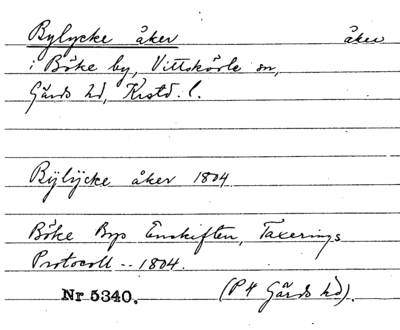 Bylycke åker åker
i Böke by, Vittskövle sn,
Gärds hd, Krstd. l.
Bÿlÿcke åker 1804
Böke Bys Enskiften, Taxerings
Protocoll -- 1804.
Nr 5340. (P4 Gärds hd).